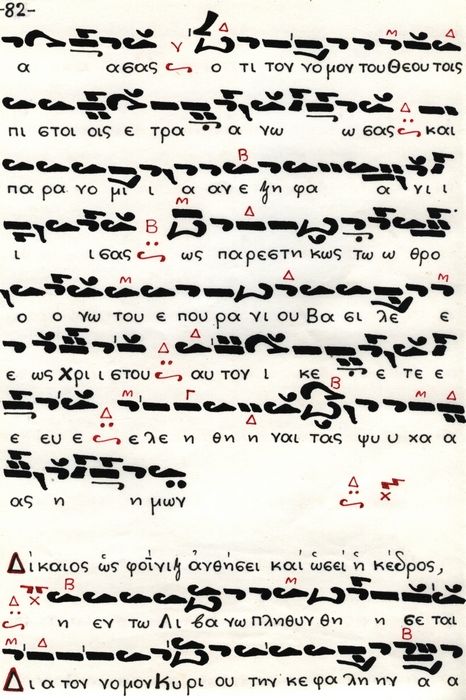 -82-
α ασας ο τι τον νο μον του Θεου τοις
πι στοι οις ε τρα α νω ω σας και
πα ρα νο μι ι α ανε λη φα α γι ι
ι ισας ως παρεστη κως τω ω θρο
ο ο νω του ε που ρα νι ου Βα σι λε ε
ε ως Χρι ι στου αυ τον ι κε ε τε ε
ε ευ ε ελε η θη η ναι τας ψυ υ χα α
ας η η μων
Δίκαιος ὡς φοῖνιξ ἀνθήσει καὶ ὡσεὶ ἡ κέδρος,
η εν τω Λι βα νω πληθυν θη η σε ται
Δι α τον νο μον Κυρι ου την κε φα λη ην α α